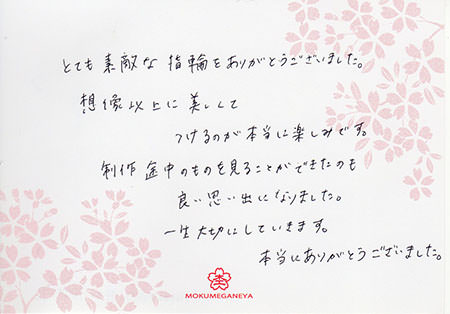 とても素敵な指輪をありがとうございました。
想像以上に美しくて
つけるのが本当に楽しみです。
制作途中のものを見ることができたのも
良い思い出になりました。
一生大切にしていきます。
本当にありがとうございました。
MOKUMEGANEYA